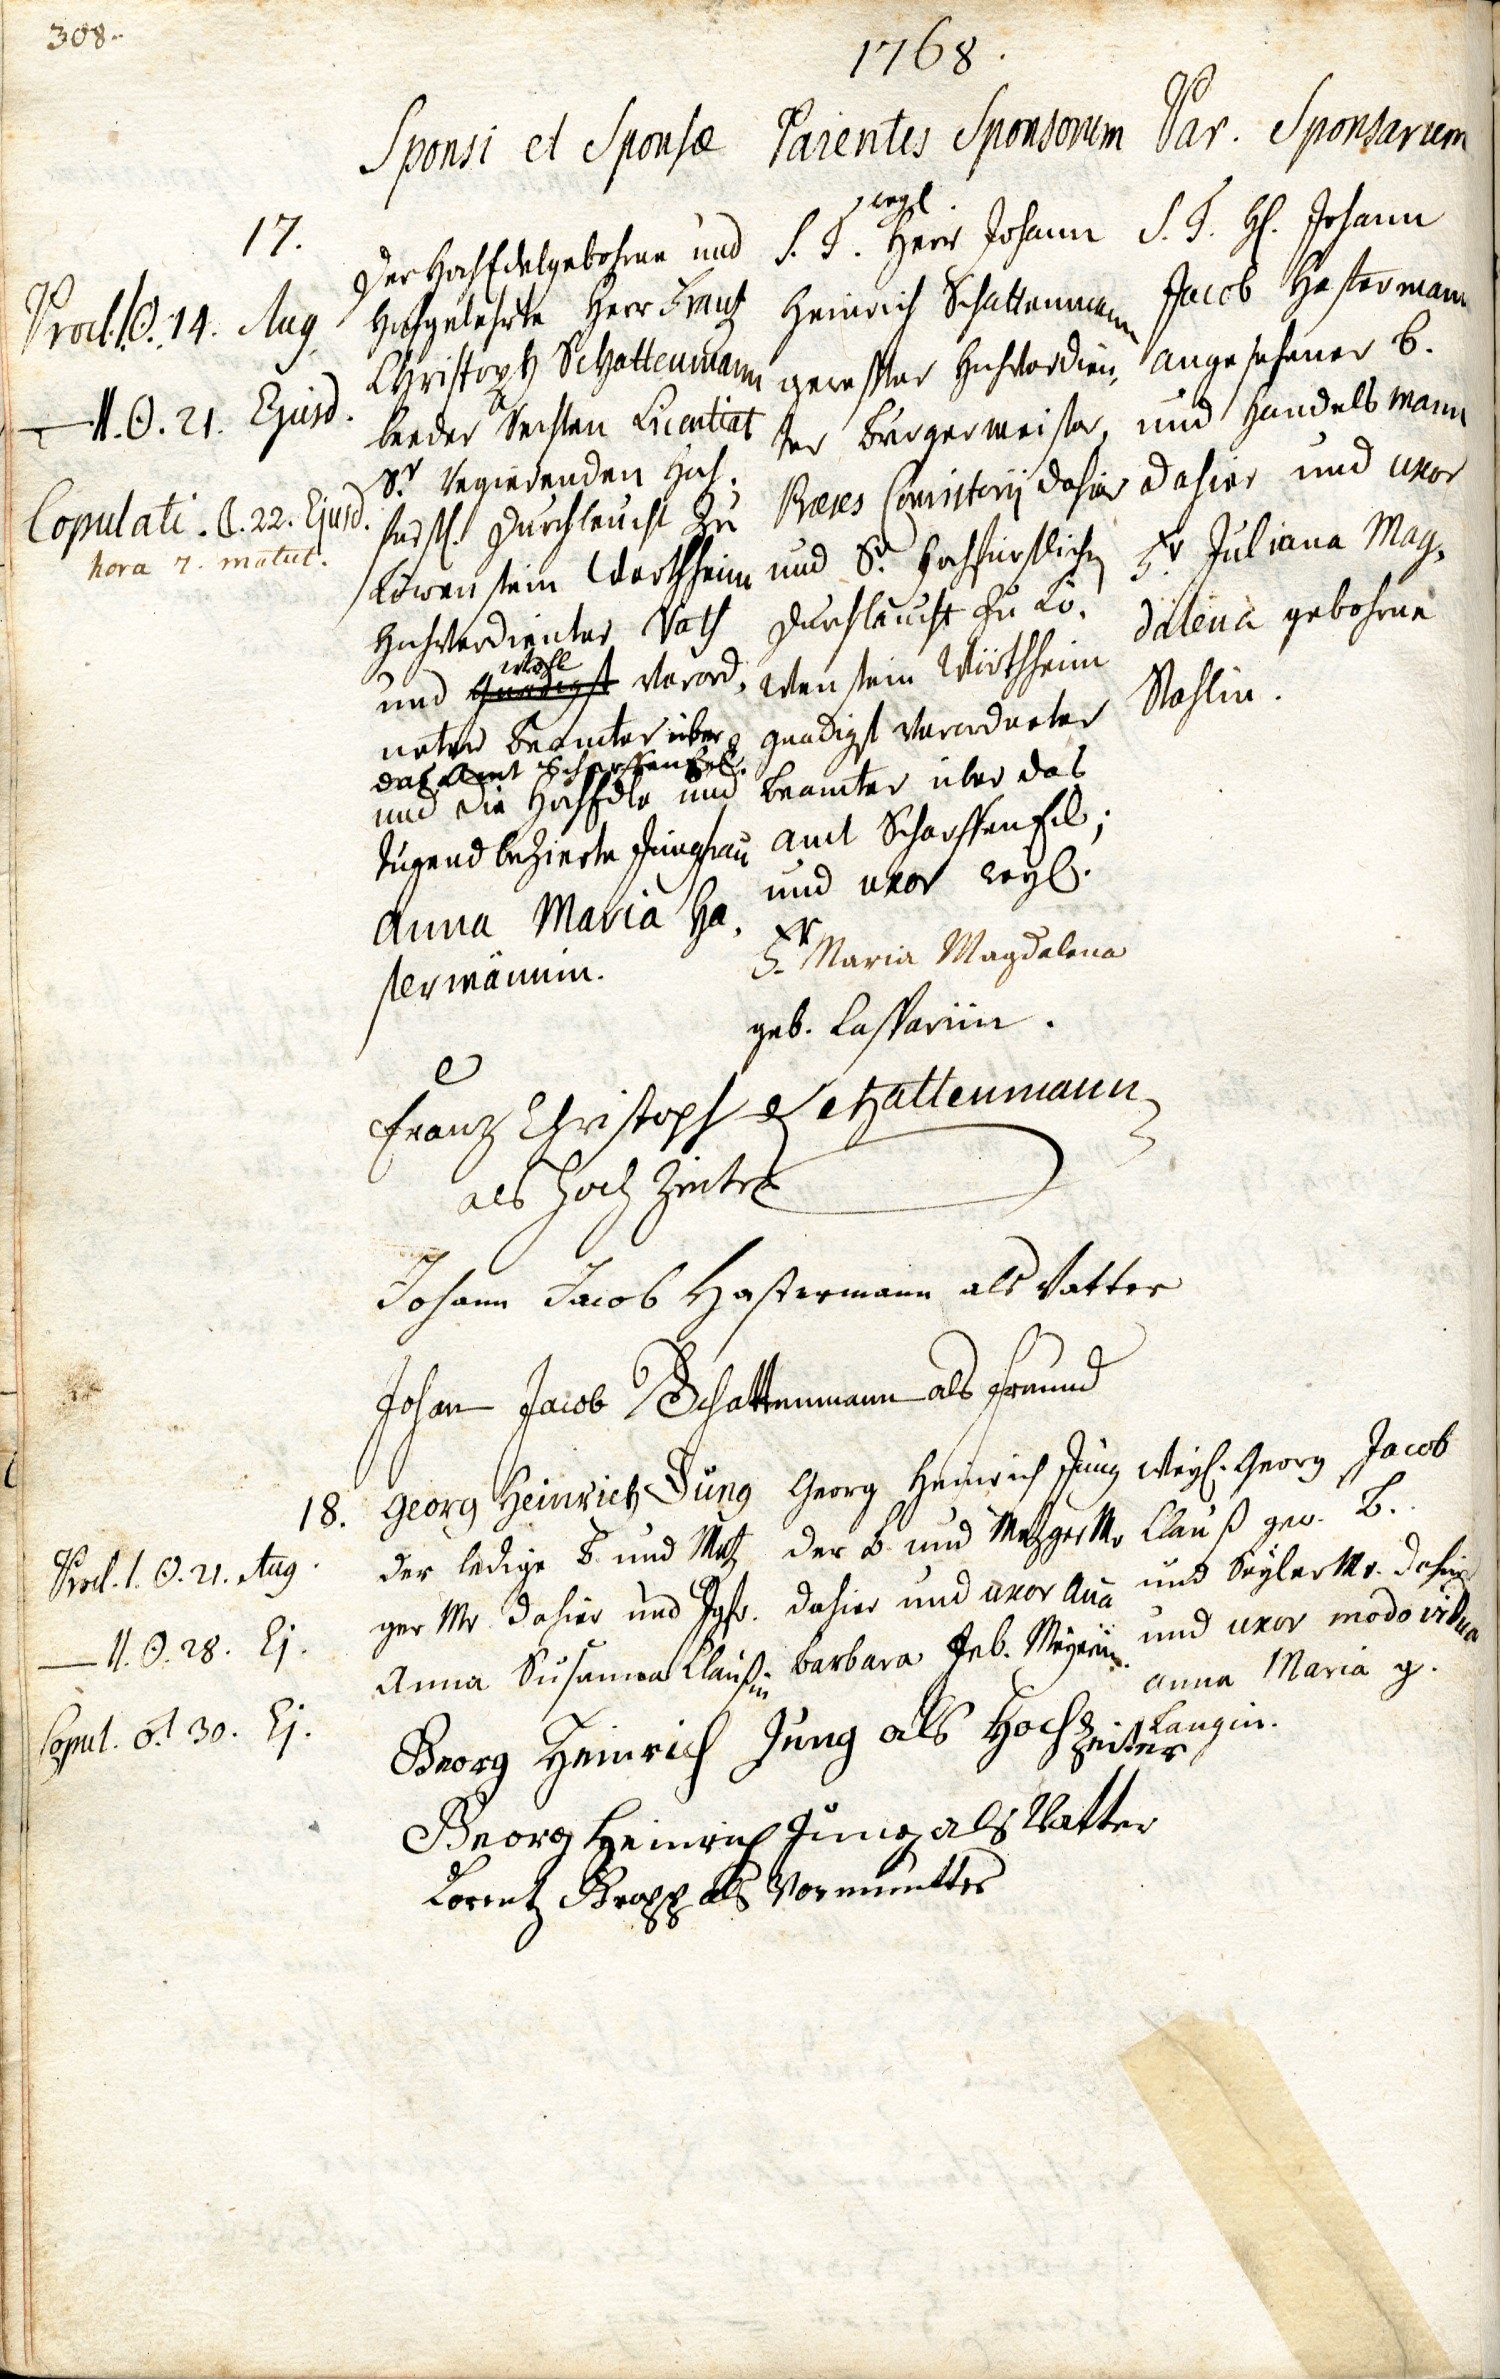 308.
1768.
Sponsi et Sponsæ
Parentes Sponsorum
Par. Sponsarum
17.
Procl. I. ☉. 14. Aug
— II. ☉. 21. Ejusd.
Copulati. ☾. 22. Ejusd.
hora 7. matut.
Der HochEdelgebohrne und
Hochgelehrte Herr Frantz
Christoph Schattenmann
beeder Rechten Licentiat
Sr. regierenden Hoch-
fürstl. Durchleucht zu
Löwenstein Werthheim
Hochverdienter Rath
und wohl gnädigst verord-
neter Beamter über
das Amt Scharffeneck
und die HochEdle und
Tugendbezierte Jungfrau
Anna Maria Ha-
stermännin.
S. T. weyl. Herr Johann
Heinrich Schattenmann
geweßter Hochverdien-
ter Burgermeister,
Præses Consistorij dahier
und Sr. Hochfürstlichen
Durchlaucht zu Lö-
wenstein Wërthheim
gnädigst verordneter
Beamter über das
Amt Scharffeneck;
und uxor weyl.
Fr. Maria Magdalena
geb. Casparïin.
S. T. H. Johann
Jacob Hastermann
angesehener B.
und Handelsmann
dahier und uxor
Fr. Juliana Mag-
dalena gebohrne
Stahlin.
Franz Christoph Schattenmann
als Hochzeiter
Johann Jacob Hastermann als Vatter
Johan Jacob Schattenmann als freund
18.
Procl. I. ☉. 21. Aug.
— II. ☉. 28. Ej.
Copul. ♂. 30. Ej.
Georg Heinrich Jung
der ledige B. und Metz
ger Mr dahier und Jgfr.
Anna Susanna Claußin
Georg Heinrich Jung
der B. und Metzger Mr
dahier und uxor Aña
Barbara geb. Meyerin.
Weyl. Georg Jacob
Clauß gew. B.
und Seyler Mr. dahier
und uxor modo vidua
Anna Maria g.
Langin.
Georg Heinrich Jung als Hochzeiter
Georg Heinrich Jung als Vatter
Lorentz Gropp als Vormundter